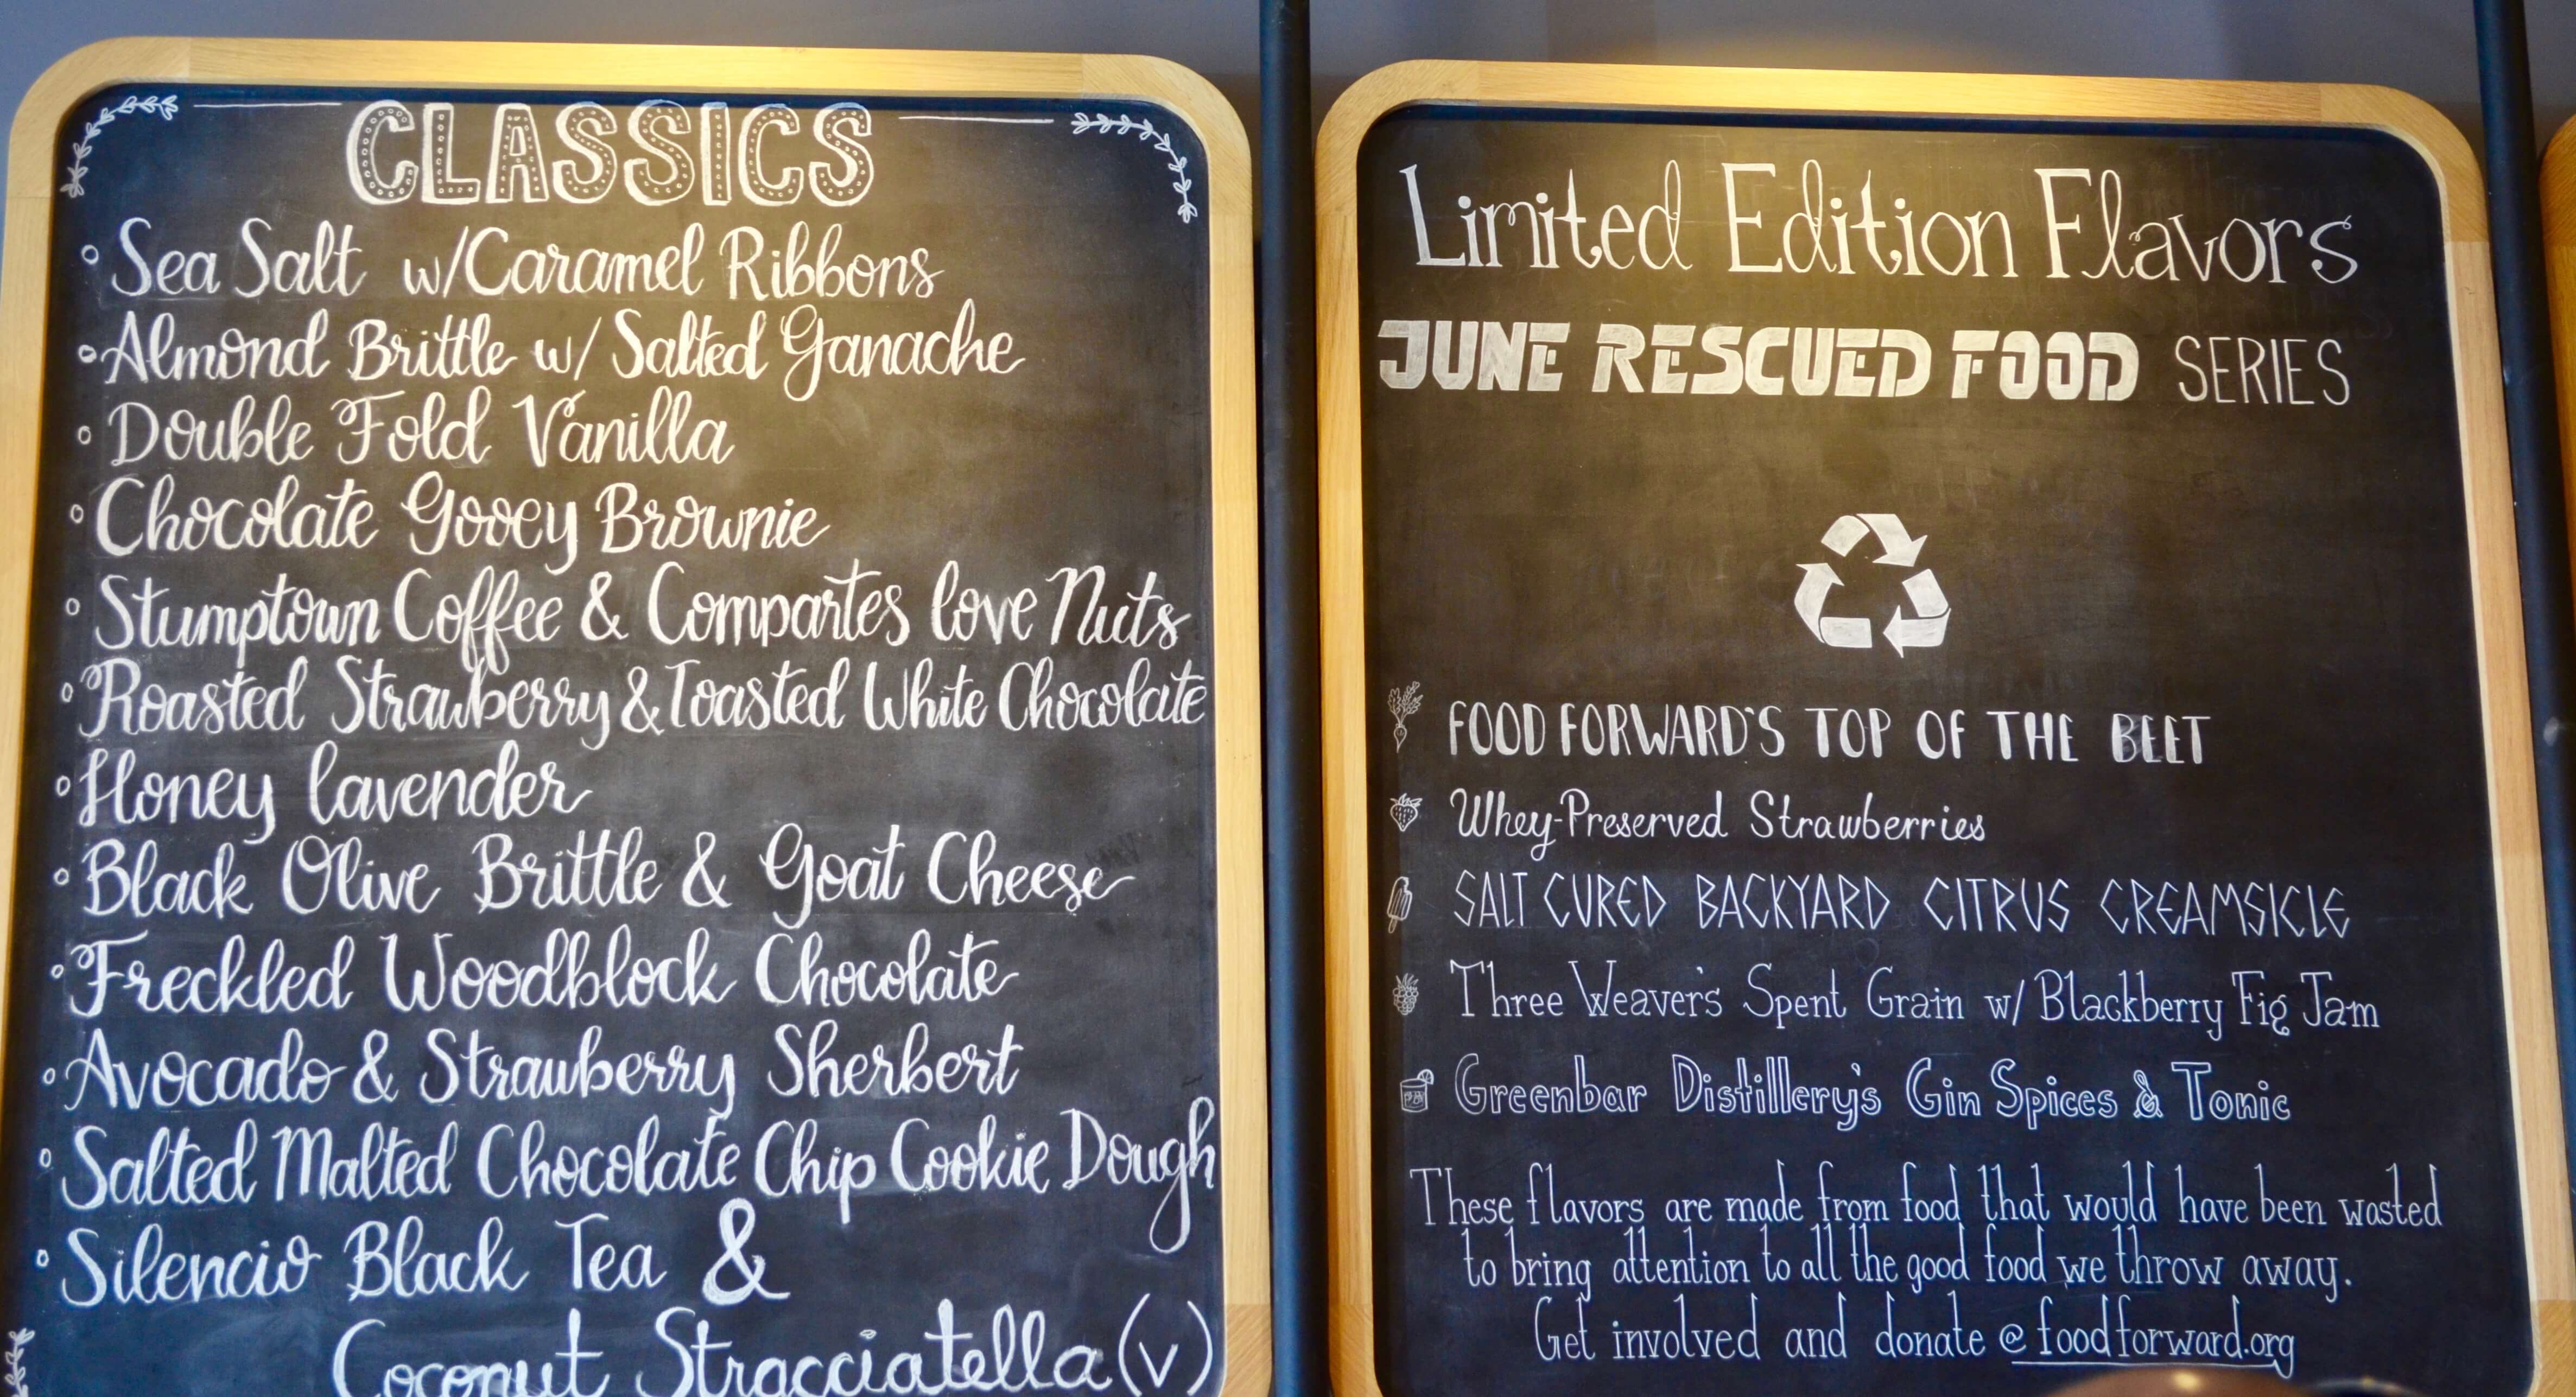 CLASSICS
Sea Salt w/Caramel Ribbons
Almond Brittle w/ Salted Ganache
Double Fold Vanilla
Chocolate Gooey Brownie
Stumptown Coffee & Compartes love Nuts
Roasted Strawberry & Toasted White Chocolate
Honey lavender
Black Olive Brittle & Goat Cheese
Freckled Woodblock Chocolate
Avocado & Strawberry Sherbert
Salted Malted Chocolate Chip Cookie Dough
Silencio Black Tea &
Coconut Stracciatella (v)
Limited Edition Flavors
JUNE RESCUED FOOD SERIES
FOOD FORWARD'S TOP OF THE BEET
Whey-Preserved Strawberries
SALT CURED BACKYARD CITRUS CREAMSICLE
Three Weaver's Spent Grain w/ Blackberry Fig Jam
Greenbar Distillery's Gin Spices & Tonic
These flavors are made from food that would have been wasted
to bring attention to all the good food we throw away.
Get involved and donate @ foodforward.org